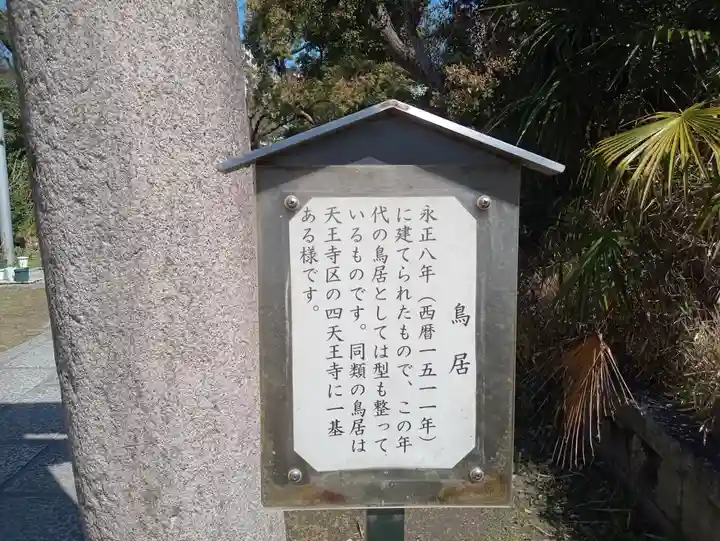 鳥居
永正八年（西暦一五一一年）
に建てられたもので、この年
代の鳥居としては型も整って、
いるものです。同類の鳥居は
天王寺区の四天王寺に一基
ある様です。